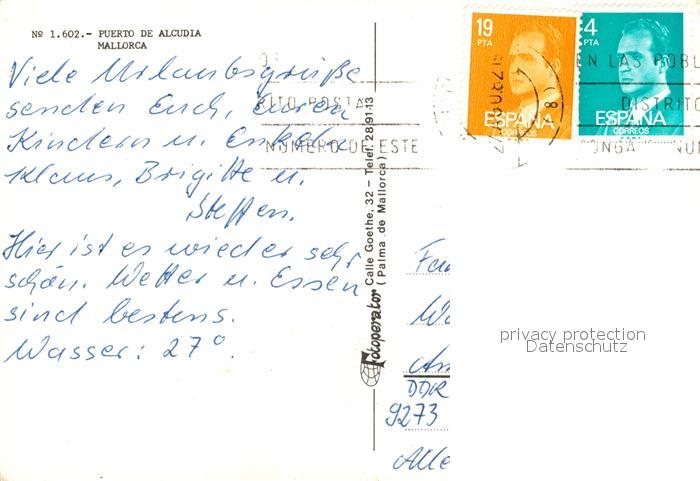 Nº 1.602.- PUERTO DE ALCUDIA
MALLORCA
Viele Urlaubsgrüße
senden Euch, Euren
Kindern u. Enkeln
Klaus, Brigitte u.
Steffen.
Hier ist es wieder sehr
schön. Wetter u. Essen
sind bestens.
Wasser: 27°.
Fotoperator Calle Goethe, 32 - Telef. 28 91 13
(Palma de Mallorca)
19
PTA
ESPAÑA
CORREOS
4
PTA
ESPAÑA
CORREOS
EN LAS POBL
DISTRITO
NUMERO DE ESTE
DDR
9273
privacy protection
Datenschutz